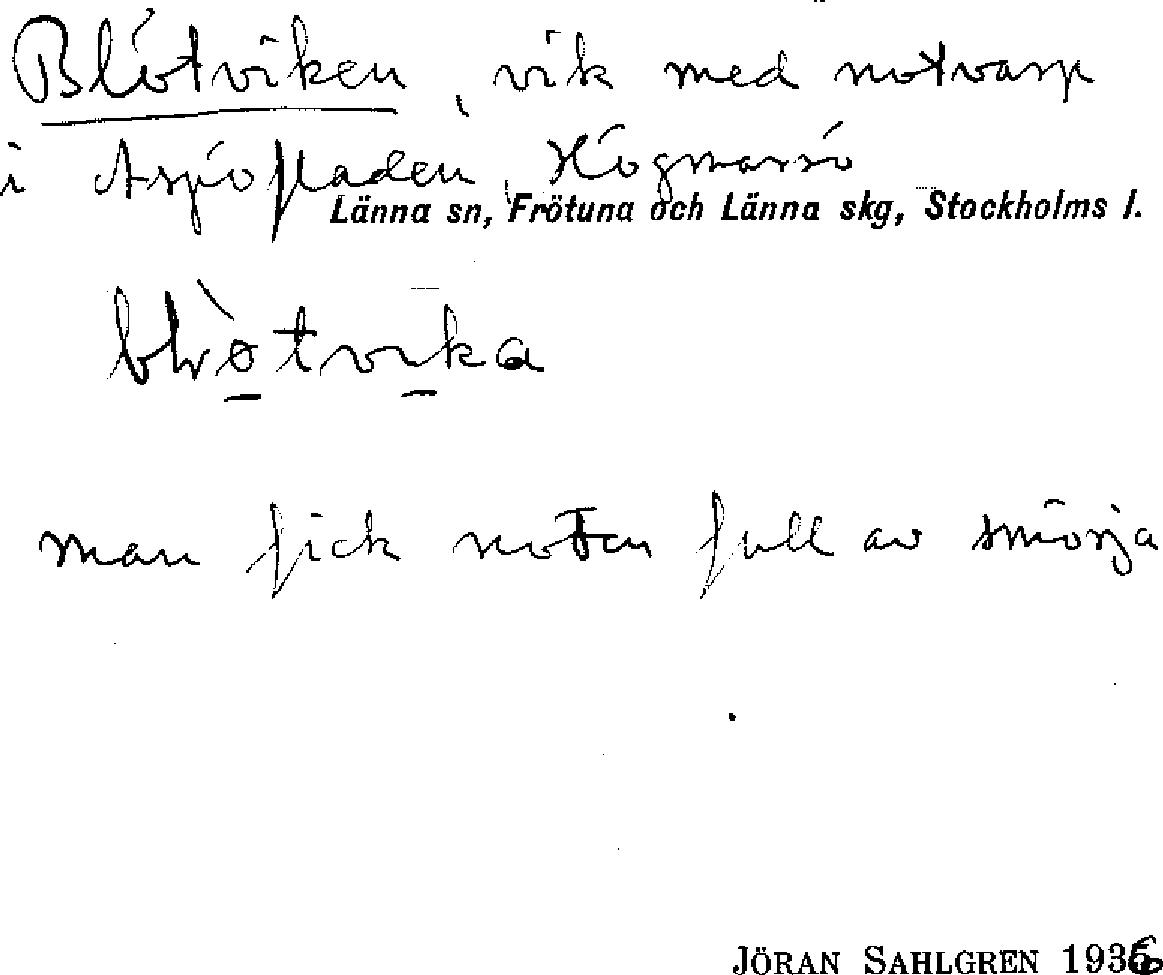 Blötviken, vik med notvarp
i Aspöfladen, Högmarsö
Länna sn, Frötuna och Länna skg, Stockholms l.
blø̀tvika
man fick noten full av smörja
JÖRAN SAHLGREN 1936